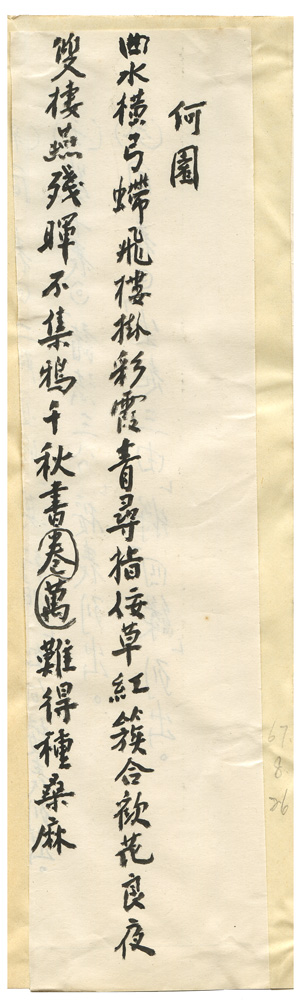 何園
曲水橫弓螮飛樓掛彩霞青尋指佞草紅簇合歡花良夜
雙棲燕殘暉不集鴉千秋書卷萬難得種桑麻
67.
8.
26